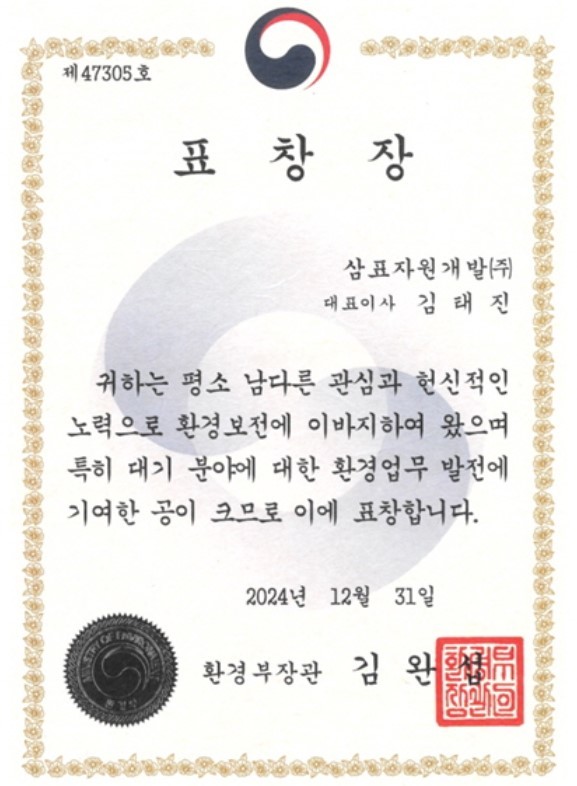 제47305호
표 창 장
삼표자원개발(주)
대표이사 김 태 진
귀하는 평소 남다른 관심과 헌신적인
노력으로 환경보전에 이바지하여 왔으며
특히 대기 분야에 대한 환경업무 발전에
기여한 공이 크므로 이에 표창합니다.
2024년 12월 31일
환경부장관 김 완 섭